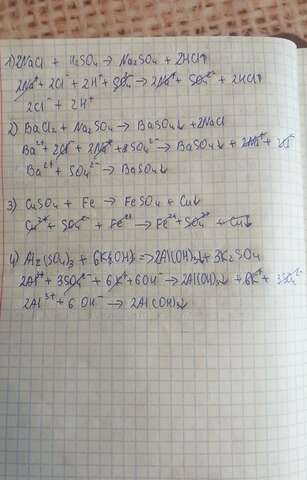 1) 2NaCl + H₂SO₄ → Na₂SO₄ + 2HCl↑
2Na⁺ + 2Cl⁻ + 2H⁺ + SO₄²⁻ → 2Na⁺ + SO₄²⁻ + 2HCl↑
2Cl⁻ + 2H⁺
2) BaCl₂ + Na₂SO₄ → BaSO₄↓ + 2NaCl
Ba²⁺ + 2Cl⁻ + 2Na⁺ + SO₄²⁻ → BaSO₄↓ + 2Na⁺ + 2Cl⁻
Ba²⁺ + SO₄²⁻ → BaSO₄↓
3) CuSO₄ + Fe → FeSO₄ + Cu↓
Cu²⁺ + SO₄²⁻ + Fe → Fe²⁺ + SO₄²⁻ + Cu↓
4) Al₂(SO₄)₃ + 6K(OH) => 2Al(OH)₃↓ + 3K₂SO₄
2Al³⁺ + 3SO₄²⁻ + 6K⁺ + 6OH⁻ → 2Al(OH)₃↓ + 6K⁺ + 3SO₄²⁻
2Al³⁺ + 6OH⁻ → 2Al(OH)₃↓